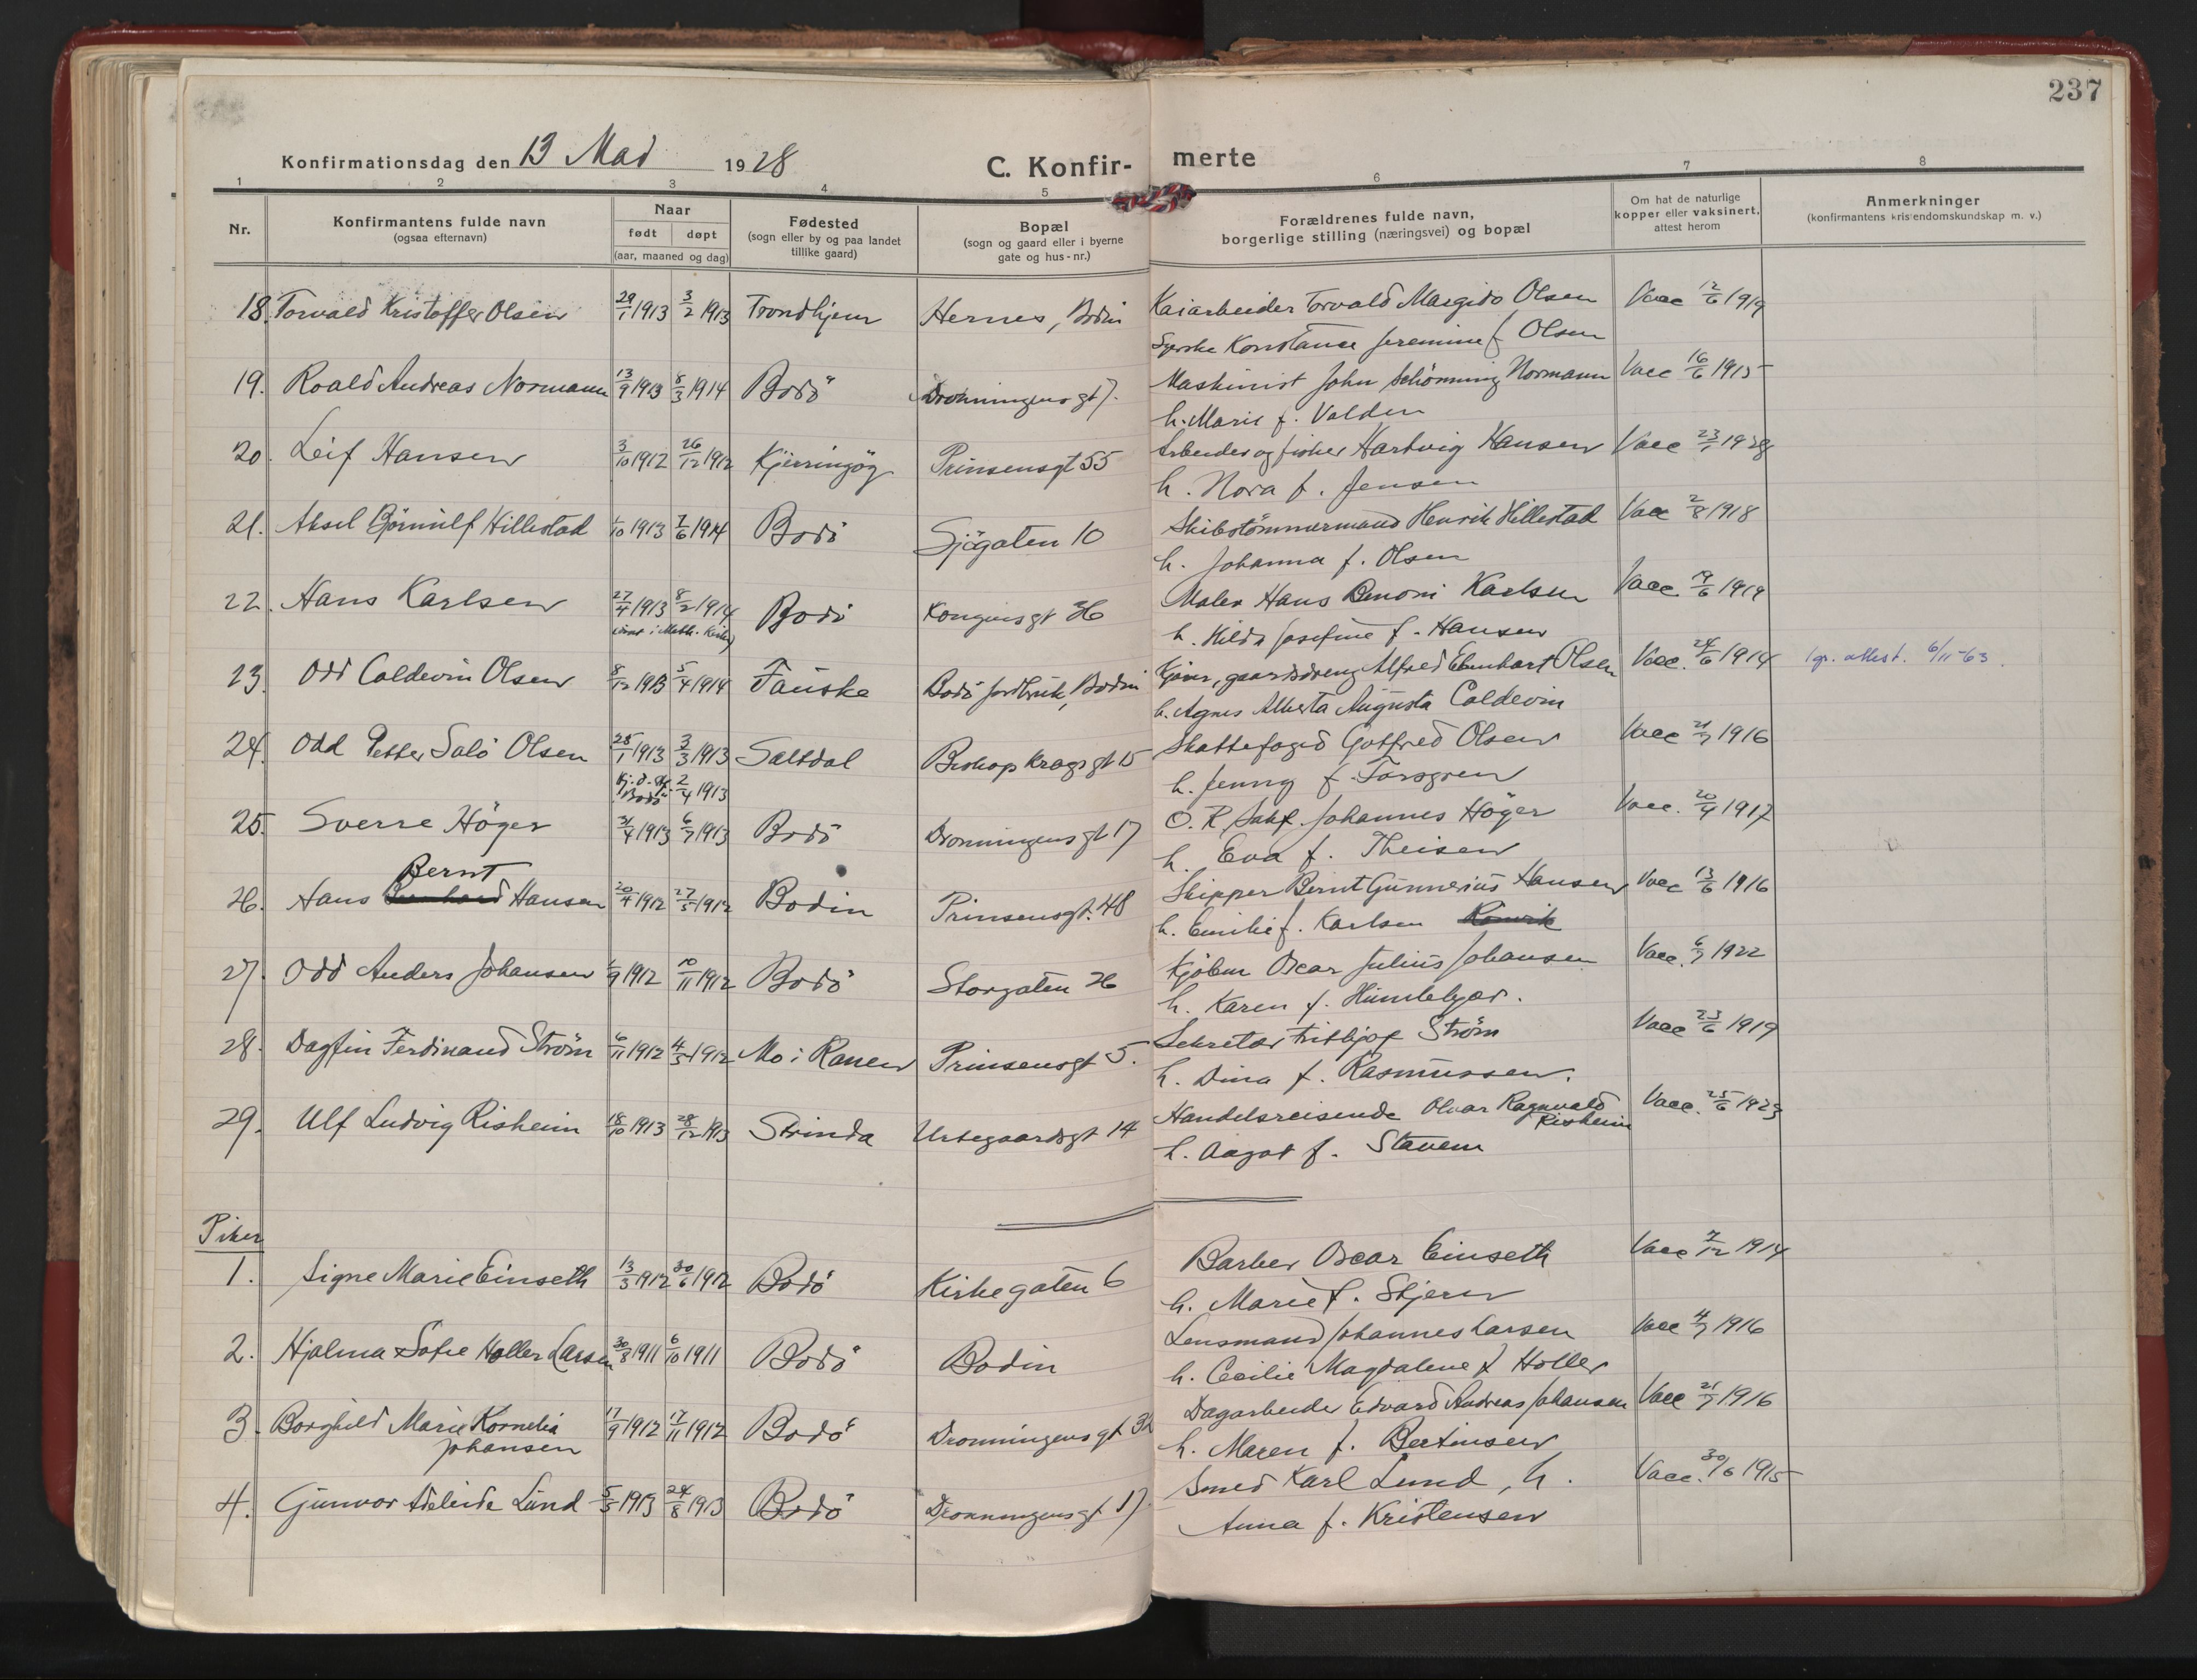 237
Konfirmationsdag den 13 Mai 1928 C. Konfir- merte
1 2 3 4 5 6 7 8
Nr. Konfirmantens fulde navn (ogsaa efternavn) Naar født døpt (aar, maaned og dag) Fødested (sogn eller by og paa landet tillike gaard) Bopæl (sogn og gaard eller i byerne gate og hus-nr.) Forældrenes fulde navn, borgerlige stilling (næringsvei) og bopæl Om hat de naturlige kopper eller vaksinert, attest herom Anmerkninger (konfirmantens kristendomskundskap m. v.)
18. Torvald Kristoffer Olsen 29/1 1913 3/2 1913 Trondhjem Hernes, Bodin Kaiarbeider Torvald Margido Olsen Vacc 12/6 1919
Syerske Konstanse Jeremine f Olsen
19. Roald Andreas Normann 13/9 1913 8/3 1914 Bodö Dronningensgt 7. Maskinist John Schönning Normann Vacc 16/6 1915
h. Marie f. Valden
20. Leif Hansen 3/10 1912 26/12 1912 Kjerringöy Prinsensgt 55 Arbeider og fisker Hartvig Hansen Vacc 23/1 1928
h. Nora f. Jensen
21. Aksel Björnulf Hillestad 1/10 1913 7/6 1914 Bodö Sjögaten 10 Skibstömmermand Henrik Hillestad Vacc 2/8 1918
h. Johanna f. Olsen
22. Hans Karlsen 27/4 1913 8/2 1914 Bodö Kongensgt 36 Maler Hans Benoni Karlsen Vacc. 19/6 1919
i Meth. Kirke)
h. Hilda Josefine f. Hansen
23. Odd Coldevin Olsen 8/12 1913 5/4 1914 Fauske Bodö jordbruk, Bodin Gjöver, gaardsdreng Alfred Edenhart Olsen Vacc. 24/6 1914 1 gr. attest. 6/11-63.
h. Agnes Alberta Augusta Coldevin
24. Odd Petter Salö Olsen 25/1 1913 3/3 1913 Saltdal Biskop Kragsgt 15 Skattefoged Gotfred Olsen Vacc 21/7 1916
Bodö 2/4 1913
h. Jenny f. Forsgren
25. Sverre Höger 3/4 1913 6/7 1913 Bodö Dronningensgt 17 O. R. Sakf. Johannes Höger Vacc. 20/4 1917
h. Eva f. Theisen
Bernt
26. Hans Bernhard Hansen 20/4 1912 27/5 1912 Bodin Prinsensgt. 48 Skipper Bernt Gunnerius Hansen Vacc 13/6 1916
h. Emilie f. Karlsen Rönvik
27. Odd Anders Johansen 1/9 1912 10/11 1912 Bodö Storgaten 36 Kjöbm Oscar Julius Johansen Vacc. 6/7 1922
h. Karen f. Humlebger.
28. Dagfin Ferdinand Ström 6/11 1912 4/3 1912 Mo i Ranen Prinsensgt 5. Sekretær Fritbjof Ström Vacc 23/6 1919
h. Dina f. Rasmussen.
29. Ulf Ludvig Risheim 18/10 1913 28/12 1913 Strinda Urtegaardsgt 14 Handelsreisende Olvar Ragnvald Risheim Vacc. 25/6 1923
h. Aagot f. Stavem
Piker
1. Signe Marie Einseth 13/3 1912 30/6 1912 Bodö Kirkegaten 6 Barber Oscar Einseth Vacc 7/12 1914
h. Marie f. Skjerv
2. Hjalma Sofie Holler Larsen 30/8 1911 6/10 1911 Bodö Bodin Lensmand Johannes Larsen Vacc 4/7 1916
h. Cecilie Magdalene f Holler
3. Borghild Marie Kornelia 17/9 1912 17/11 1912 Bodö Dronningensgt 32 Dagarbeider Edvard Andreas Johansen Vacc 21/7 1916
Johansen
h. Maren f. Bertinsen
4. Gunvor Adeleide Lund 5/5 1913 24/8 1913 Bodö Dronningensgt 17. Smed Karl Lund, h. Vacc. 30/6 1915
Anna f. Kristensen